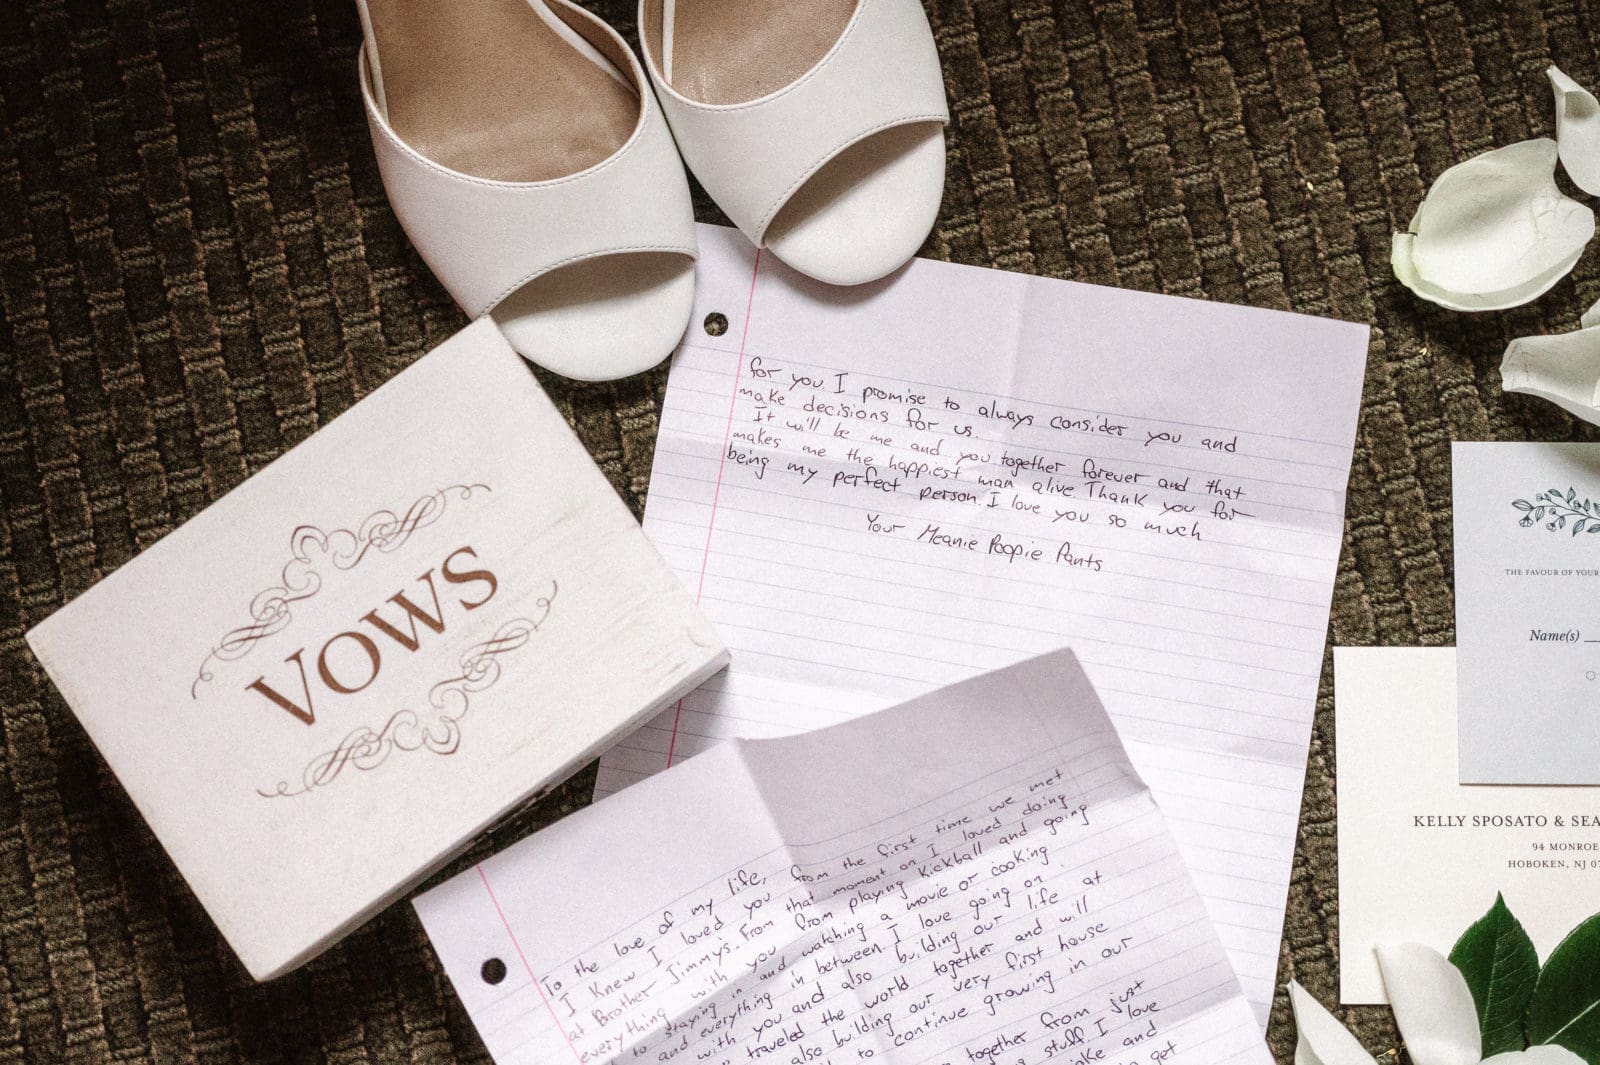 VOWS
for you. I promise to always consider you and
make decisions for us.
It will be me and you together forever and that
makes me the happiest man alive. Thank you for
being my perfect person. I love you so much
Your Meanie Poopie Pants
To the love of my life,
I Knew I loved you from the first time we met
at Brother Jimmy's. From that moment on I loved doing
everything with you from playing Kickball and going
to staying in and watching a movie or cooking
and everything in between. I love going on
with you and also building our life at
traveled the world together and will
also building our very first house
to continue growing in our
together from just
stuff. I love
and
get
THE FAVOUR OF YOUR
Name(s)
KELLY SPOSATO & SEA
94 MONROE
HOBOKEN, NJ 07